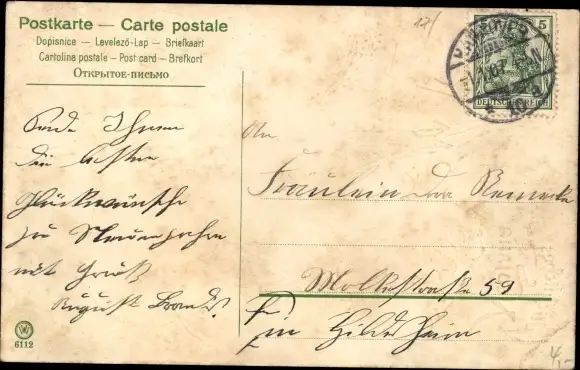 Postkarte — Carte postale
Dopisnice — Levelező-Lap — Briefkaart
Cartolina postale – Post card – Brefkort
Открытое-письмо
5
DEUTSCHES REICH
Sende Ihnen
die besten
Glückwünsche
zu Neuenjahre
mit Gruß
August
An
Fräulein
Moltkestraße 59
in Hildesheim
6112
4,-